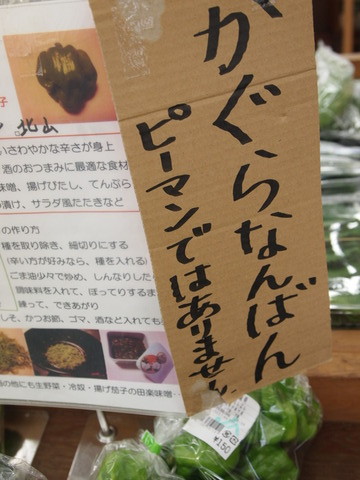 かぐらなんばん
ピーマンではありません
子
北山
いさわやかな辛さが身上
酒のおつまみに最適な食材
味噌、揚げびたし、てんぷら
漬け、サラダ風たたきなど
の作り方
種を取り除き、細切りにする
(辛い方が好みなら、種を入れる)
ごま油少々で炒め、しんなりした
調味料を入れて、ぽってりするま
味って、できあがり
しそ、かつお節、ゴマ、酒など入れても
の他にも生野菜・冷奴・揚げ茄子の田楽味噌・・
¥150